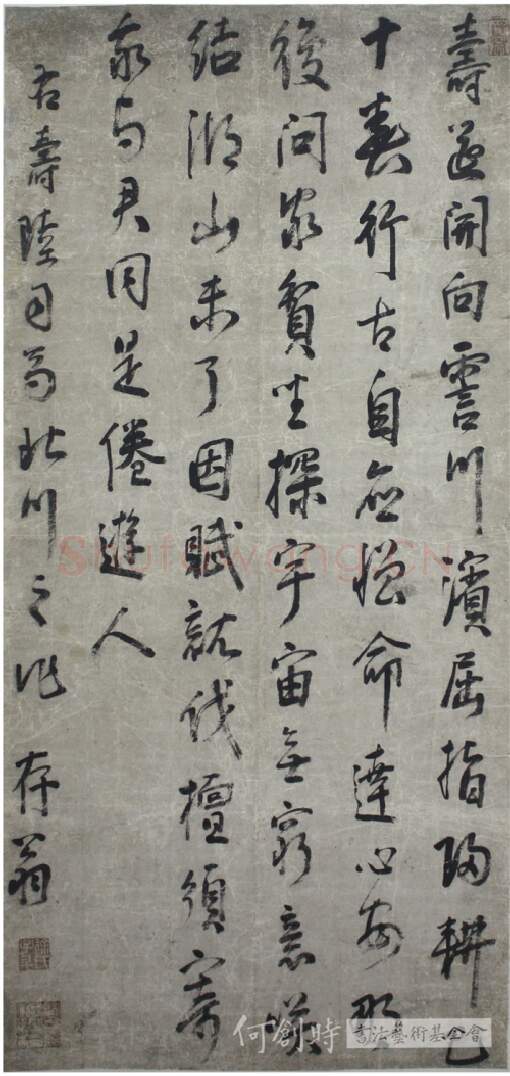 壽筵開向霅川濱屈指歸耕已
十春行古自應命達心安那
復問家貧坐探宇宙無窮意
結湖山未了因賦就伐檀須寄
我与君同是倦遊人
右壽陸司馬北川之作 存翁
Shufawang.CN
何創時 書法藝術基金會